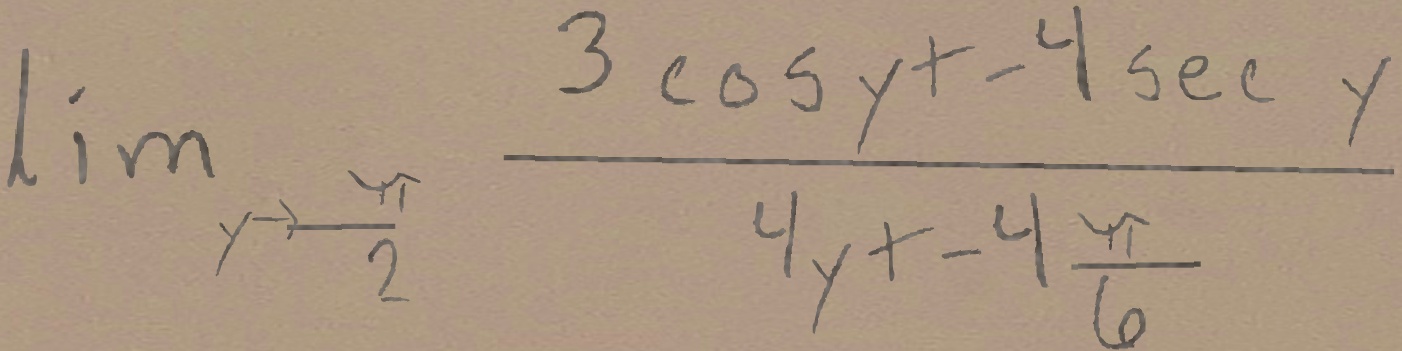 \lim_{y \to \frac{\pi}{2}} \frac{3 \cos y + -4 \sec y}{4y + -4 \frac{\pi}{6}}